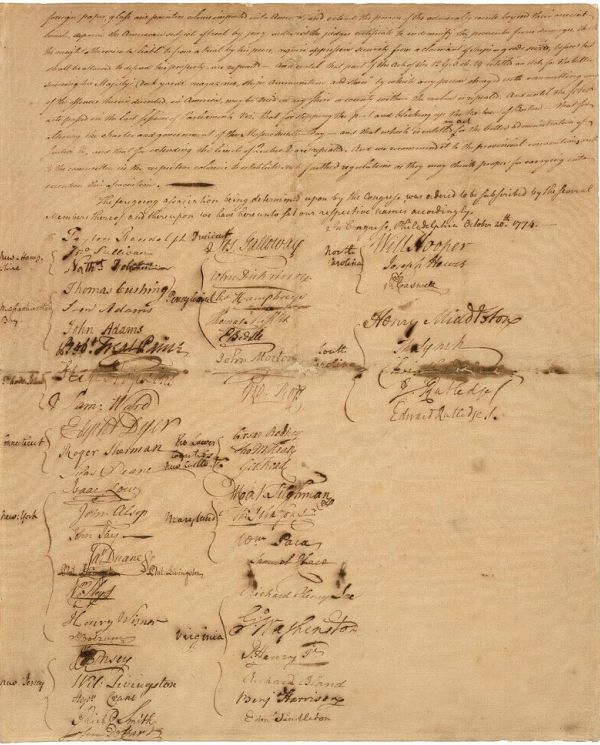 foreign paper, glass and painters colours imported into America, and extend the powers of the admiralty courts beyond their ancient
limits, deprive the American subject of trial by jury, authorize the judges certificate to indemnify the prosecutor from damages
shall be allowed to defend his property, are repealed - And until that part of the act of the
of the offences therein described in America, may be tried in any shire or county within the realm is repealed. And until the four
acts passed in the last session of Parliament, Viz. that for stopping the port and blocking up the harbour of Boston - that for
altering the charter and government of the Massachusetts-Bay - and that which is entitled an act for the better administration of
Justice &c. and that for extending the limits of Quebec &c. are repealed. And we recommend it to the provincial conventions and
to the committees in the respective colonies to establish such farther regulations as they may think proper for carrying into
execution this association
The foregoing association being determined upon by the Congress, was ordered to be subscribed by the several
Members thereof and thereupon we have hereunto set our respective names accordingly.
In Congress, Philadelphia October 20th 1774.
Peyton Randolph President
New Hampshire
Jno Sullivan
Nathl Folsom
Massachusetts Bay
Thomas Cushing
Saml Adams
John Adams
Robt Treat Paine
Rhode Island
Step Hopkins
Sam: Ward
Connecticut
Eliphт Dyer
Roger Sherman
Silas Deane
New York
Isaac Low
John Alsop
John Jay
Jas Duane
Phil. Livingston
Wm Floyd
Henry Wisner
S: Boerum
New Jersey
J. Kinsey
Wil: Livingston
Stepn Crane
Richd Smith
John De Hart
Pensylvania
Jos. Galloway
John Dickinson
Cha Humphreys
Thomas Mifflin
E Biddle
John Morton
Geo: Ross
The Lower Counties New Castle
Caesar Rodney
Tho M: Kean
Geo: Read
Maryland
Mat Tilghman
Ths Johnson Junr
Wm Paca
Samuel Chase
Virginia
Richard Henry Lee
Go Washington
P. Henry Jr
Richard Bland
Benj Harrison
Edmd Pendleton
North Carolina
Will Hooper
Joseph Hewes
Rd Caswell
South Carolina
Henry Middleton
Tho Lynch
J. Rutledge
Edward Rutledge